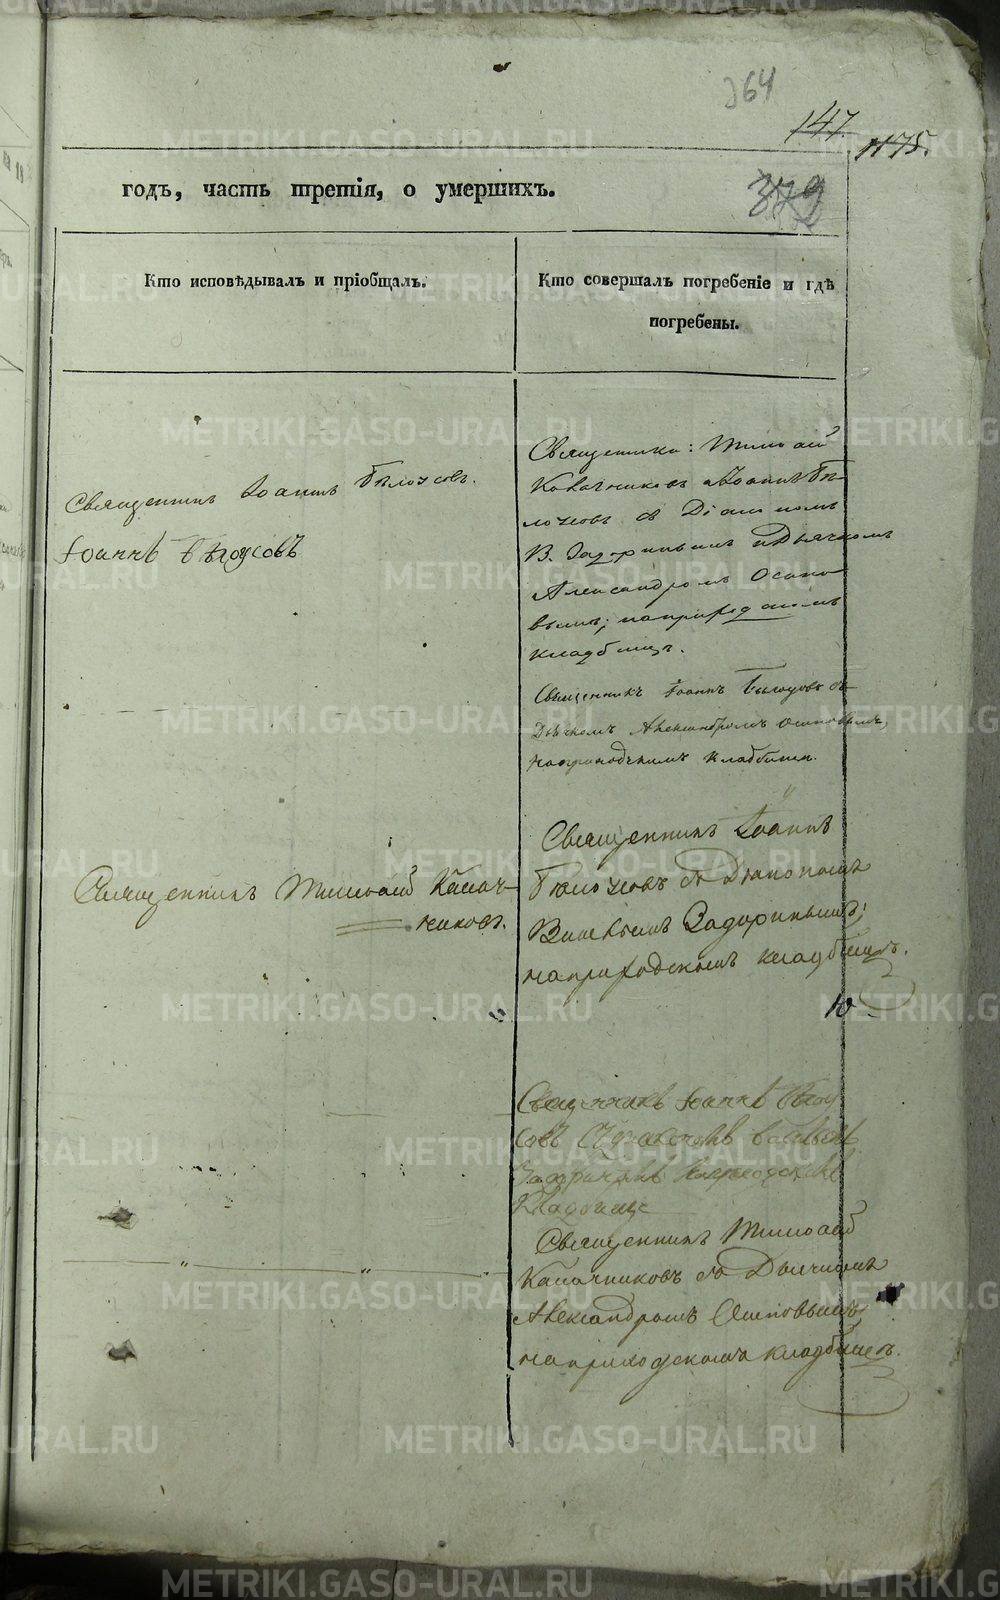 364
147.
1175.
годъ, часть третія, о умершихъ.
379
Кто исповѣдывалъ и пріобщалъ.
Кто совершалъ погребеніе и гдѣ
погребены.
Священникъ Іоаннъ Бѣлоусовъ.
Іоаннъ Бѣлоусовъ
Священники: Тимоѳей
Калачниковъ и Іоаннъ Бѣ-
лоусовъ съ Діакономъ
В. Задоринымъ и Дьячкомъ
Александромъ Осипо-
вымъ; на приходскомъ
кладбищѣ.
Священникъ Іоаннъ Бѣлоусовъ съ
Дьячкомъ Александромъ Осиповымъ,
на приходскомъ кладбищѣ.
Священникъ Тимоѳей Калач-
никовъ.
Священникъ Іоаннъ
Бѣлоусовъ съ Діакономъ
Задоринымъ;
на приходскомъ кладбищѣ.
10
Священникъ Іоаннъ Бѣлоу
совъ
Задоринымъ
Кладбище
Священникъ Тимоѳей
Калачниковъ съ Дьячкомъ
Александромъ Осиповымъ,
на приходскомъ кладбищѣ.
METRIKI.GASO-URAL.RU